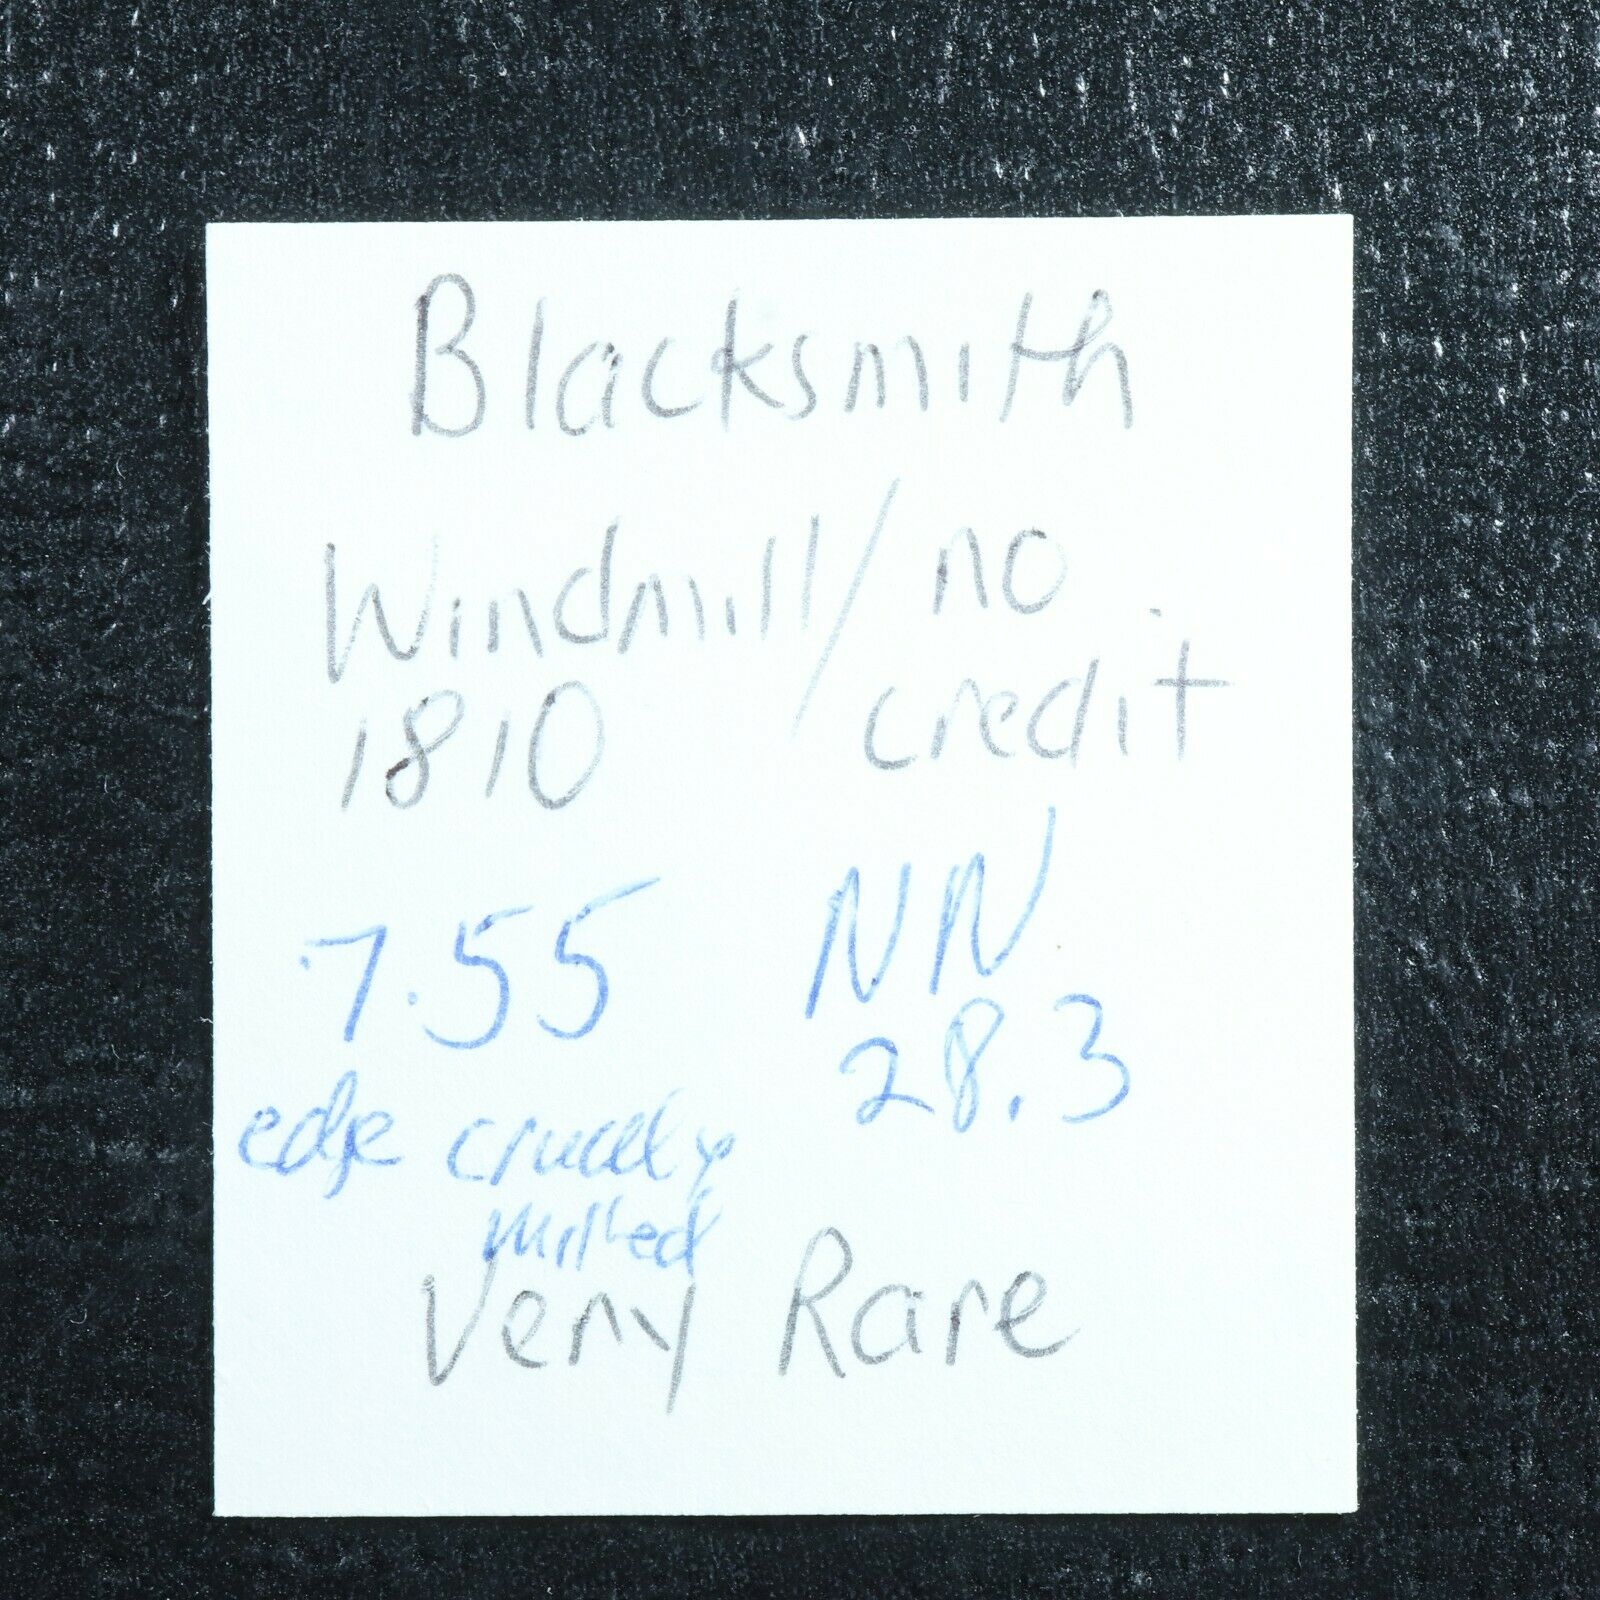 Blacksmith
Windmill/no
1810 credit
7.55 NN
28.3
edge crudely
milled
Very Rare